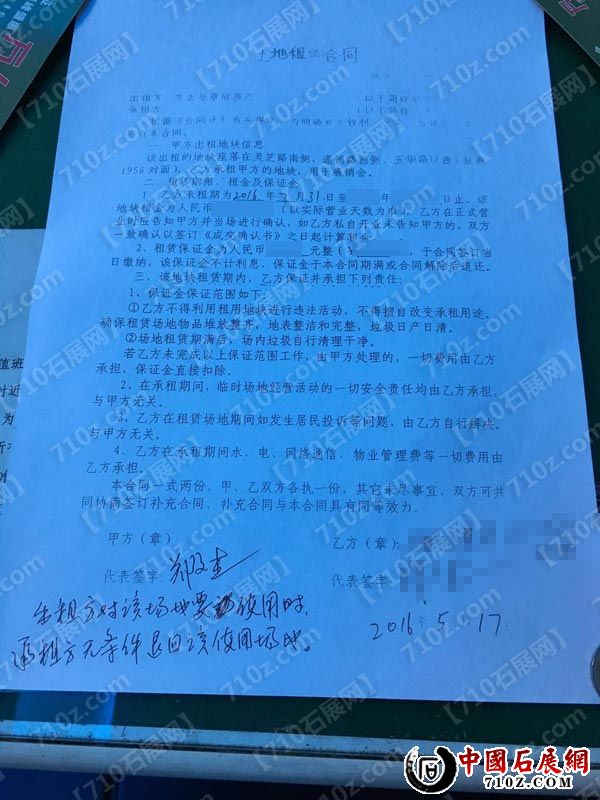 土地租 合同
出租方
(以下简称甲
承租方
(以下简称
根据《合同法》
签订本合同。
一 甲方出租地块信息
该出租的地块座落在灵芝路南侧,递铺路西侧,玉华路以西(
1958 对面),乙方承租甲方的地块,用于展销会。
二、租赁期限、租金及保证金
1、乙方承租期为2016年7月31日至 年 日止。该
地块租金为人民币 (以实际营业天数为准),乙方在正式营
业时应告知甲方并当场进行确认,如乙方私自开业未告知甲方的,双方
一致确认以签订《成交确认书》之日起计算租金
2、租赁保证金为人民币 元整( ,于合同签订当
日缴纳,该保证金不计利息,保证金于本合同期满或合同解除后退还。
三、该地块租赁期内,乙方保证并承担下列责任:
1、保证金保证范围如下:
①乙方不得利用租用地块进行违法活动,不得擅自改变承租用途。
确保租赁场地物品堆放整齐,地表整洁和完整,垃圾日产日清。
②场地租赁期满后,场内垃圾自行清理干净。
若乙方未完成以上保证范围工作,由甲方处理的,一切费用由乙方
承担,保证金直接扣除。
2、在承租期间,临时场地经营活动的一切安全责任均由乙方承担,
与甲方无关。
3、乙方在租赁场地期间如发生居民投诉等问题,由乙方自行解决,
与甲方无关。
4、乙方在承租期间水、电、网络通信、物业管理费等一切费用由
乙方承担。
本合同一式两份,甲、乙双方各执一份,其它未尽事宜,双方可共
同协商签订补充合同,补充合同与本合同具有同等效力。
甲方(章)
乙方(章):
代表签字:
代表签字
出租方对该场地要 使用时,
承租方无条件退回该使用场地。
2016.5.17
值班
对近
为
所
【710石展网】
710z.com
中國石展網
710Z.COM